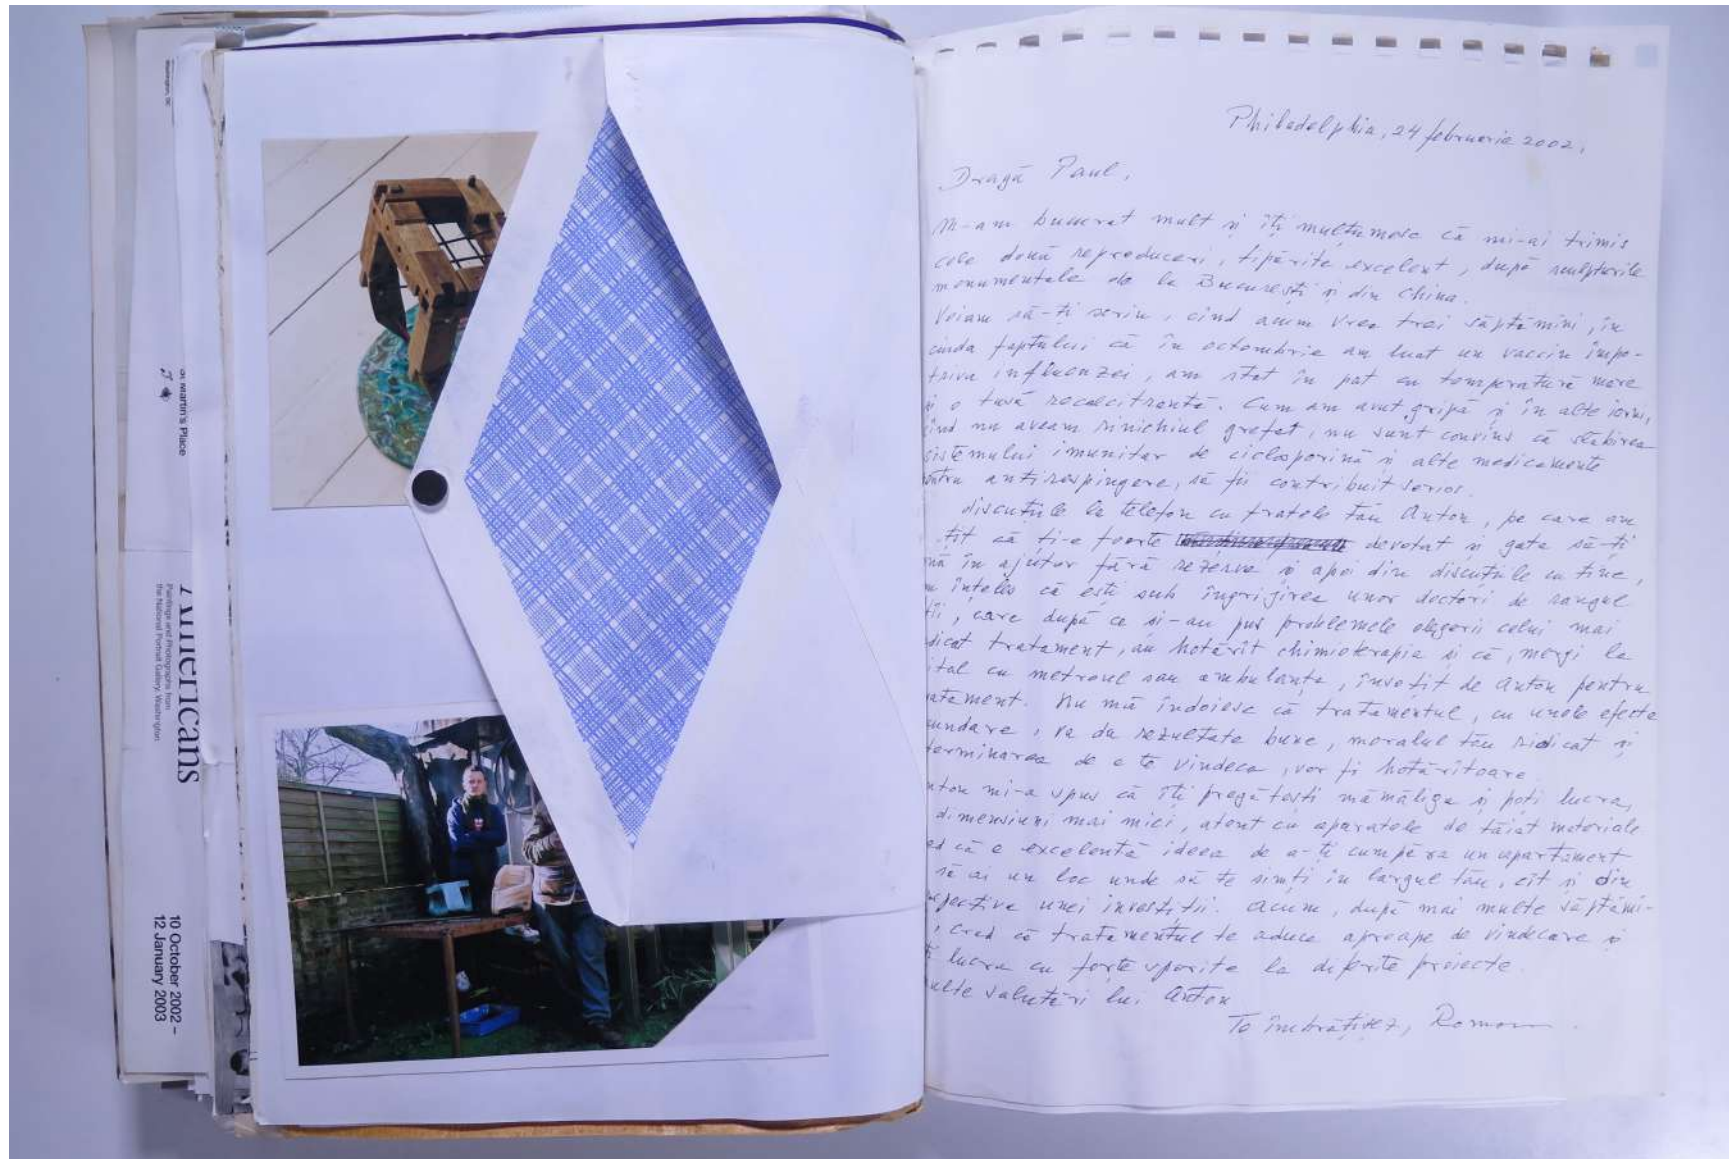 Washington, DC
St Martin's Place
Americans
Paintings and Photographs from
the National Portrait Gallery, Washington
10 October 2002 –
12 January 2003
Philadelphia, 24 februarie 2002,
Dragă Paul,
M-am bucurat mult și îți mulțumesc că mi-ai trimis
cele două reproduceri, tipărite excelent, după sculpturile
monumentale de la București și din China.
Voiam să-ți scriu, cînd acum vreo trei săptămîni, în
ciuda faptului că în octombrie am luat un vaccin împo-
triva influenzei, am stat în pat cu temperatură mare
și o tusă recalcitrantă. Cum am avut gripă și în alte ierni,
cînd nu aveam rinichiul grefat, nu sunt convins că slăbirea
sistemului imunitar de ciclosporină și alte medicamente
pentru antirespingere, să fi contribuit serios.
discuțiile la telefon cu fratele tău Anton, pe care am
țit că ți-e foarte devotat și gata să-ți
nă în ajutor fără rezerve și apoi din discuțiile cu tine,
înțeles că ești sub îngrijirea unor doctori de rangul
care după ce și-au pus problemele alegerii celui mai
dicat tratament, au hotărît chimioterapia și că, mergi la
ital cu metroul sau ambulanța, însoțit de Anton pentru
atament. Nu mă îndoiesc că tratamentul, cu unele efecte
cundare, va da rezultate bune, moralul tău ridicat și
terminarea de a te vindeca, vor fi hotărîtoare.
nton mi-a spus că îți pregătești mămăliga și poți lucra,
dimensiuni mai mici, atent cu aparatele de tăiat materiale
ed că e excelentă ideea de a-ți cumpăra un apartament
să ai un loc unde să te simți în largul tău, cît și din
spectiva unei investiții. Acum, după mai multe săptămî-
, cred că tratamentul te aduce aproape de vindecare și
ți lucra cu forțe sporite la diferite proiecte.
ulte salutări lui Anton
Te îmbrățișez, Roman